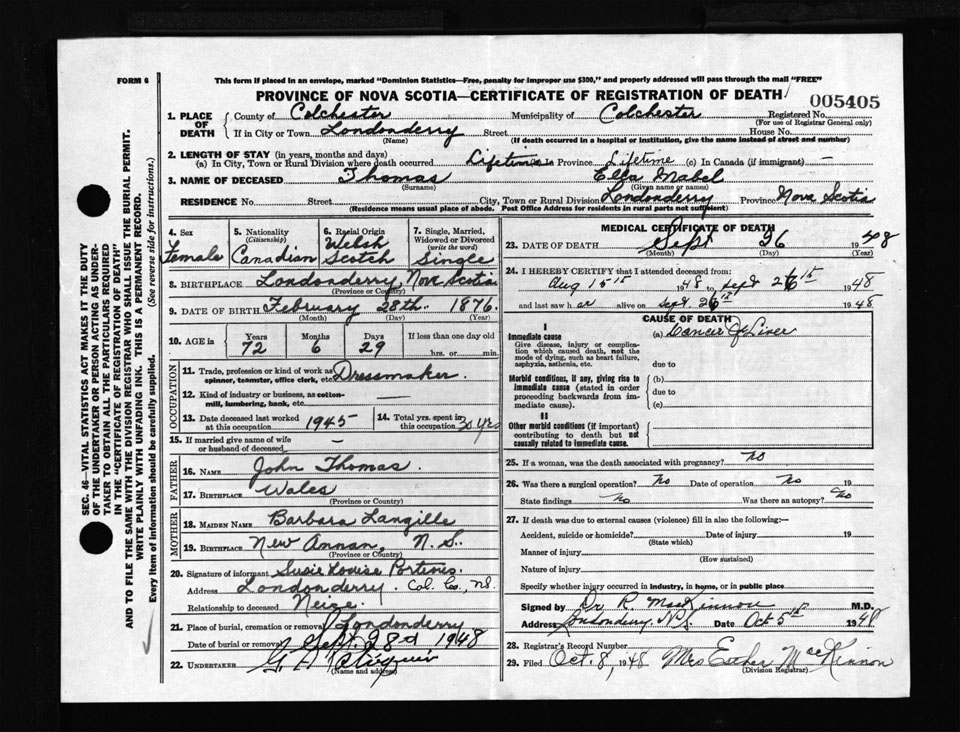 FORM 6
This form if placed in an envelope, marked "Dominion Statistics—Free, penalty for improper use $300," and properly addressed will pass through the mail "FREE"
PROVINCE OF NOVA SCOTIA—CERTIFICATE OF REGISTRATION OF DEATH
005405
1. PLACE OF DEATH County of Colchester Municipality of Colchester Registered No.
(For use of Registrar General only)
If in City or Town Londonderry Street House No.
(Name) (If death occurred in a hospital or institution, give the name instead of street and number)
2. LENGTH OF STAY (in years, months and days)
(a) In City, Town or Rural Division where death occurred Lifetime in Province Lifetime (c) In Canada (if immigrant) —
3. NAME OF DECEASED Thomas Ella Mabel
(Surname) (Given name or names)
RESIDENCE No. Street City, Town or Rural Division Londonderry Province Nova Scotia
(Residence means usual place of abode. Post Office Address for residents in rural parts not sufficient)
4. Sex Female
5. Nationality (Citizenship) Canadian
6. Racial Origin Welsh Scotch
7. Single, Married, Widowed or Divorced (write the word) Single
8. BIRTHPLACE Londonderry, Nova Scotia
(Province or Country)
9. DATE OF BIRTH February 28th 1876
(Month) (Day) (Year)
10. AGE in Years 72 Months 6 Days 29 If less than one day old
hrs. or min.
OCCUPATION
11. Trade, profession or kind of work as spinner, teamster, office clerk, etc. Dressmaker.
12. Kind of industry or business, as cotton-mill, lumbering, bank, etc. —
13. Date deceased last worked at this occupation 1945
14. Total yrs. spent in this occupation 30 yrs
15. If married give name of wife or husband of deceased —
FATHER
16. NAME John Thomas.
17. BIRTHPLACE Wales
(Province or Country)
MOTHER
18. MAIDEN NAME Barbara Langille
19. BIRTHPLACE New Annan, N.S.
(Province or Country)
20. Signature of informant Susie Louise
Address Londonderry. Col. Co., N.S.
Relationship to deceased Neice.
21. Place of burial, cremation or removal Londonderry
Date of burial or removal Sept. 28d 1948
22. UNDERTAKER G. H.
(Name and address)
MEDICAL CERTIFICATE OF DEATH
23. DATE OF DEATH Sept 26 1948
(Month) (Day) (Year)
24. I HEREBY CERTIFY that I attended deceased from:
Aug 15th 1948 to Sept 26th 1948
and last saw her alive on Sept. 26th 1948
CAUSE OF DEATH
I
Immediate cause
Give disease, injury or complication which caused death, not the mode of dying, such as heart failure, asphyxia, asthenia, etc.
(a) Cancer of Liver
due to
Morbid conditions, if any, giving rise to immediate cause (stated in order proceeding backwards from immediate cause).
(b)
due to
(c)
II
Other morbid conditions (if important) contributing to death but not causally related to immediate cause.
25. If a woman, was the death associated with pregnancy? no
26. Was there a surgical operation? no Date of operation no 19
State findings no Was there an autopsy? no
27. If death was due to external causes (violence) fill in also the following:—
Accident, suicide or homicide? Date of injury 19
(State which)
Manner of injury
(How sustained)
Nature of injury
Specify whether injury occurred in industry, in home, or in public place
Signed by Dr R. MacKinnon M.D.
Address Londonderry. N.S. Date Oct 5th 1948
28. Registrar's Record Number
29. Filed Oct. 8, 1948 Mrs Esther MacKinnon
(Division Registrar)
SEC. 46—VITAL STATISTICS ACT MAKES IT THE DUTY
OF THE UNDERTAKER OR PERSON ACTING AS UNDER-
TAKER TO OBTAIN ALL THE PARTICULARS REQUIRED
IN THE "CERTIFICATE OF REGISTRATION OF DEATH"
AND TO FILE THE SAME WITH THE DIVISION REGISTRAR WHO SHALL ISSUE THE BURIAL PERMIT.
WRITE PLAINLY WITH UNFADING INK. THIS IS A PERMANENT RECORD.
Every item of information should be carefully supplied. (See reverse side for instructions.)